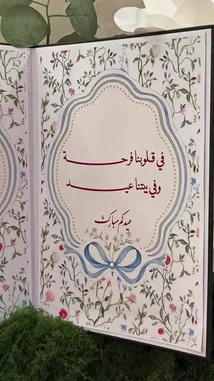 في قلوبنا فرحة
وفي بيتنا عيد
عيدكم مبارك